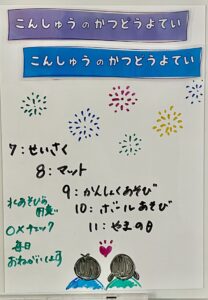 こんしゅうのかつどうよてい
こんしゅうのかつどうよてい
7：せいさく
8：マット
9：かんしょくあそび
10：ボールあそび
11：やまの日
水あそびの
用意
○×チェック
毎日
おねがいします